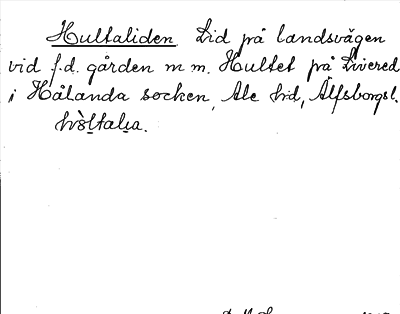 Hultaliden. Lid på landsvägen
vid f.d. gården m m. Hultet på Livered
i Hålanda socken, Ale hd, Älfsborgsl.